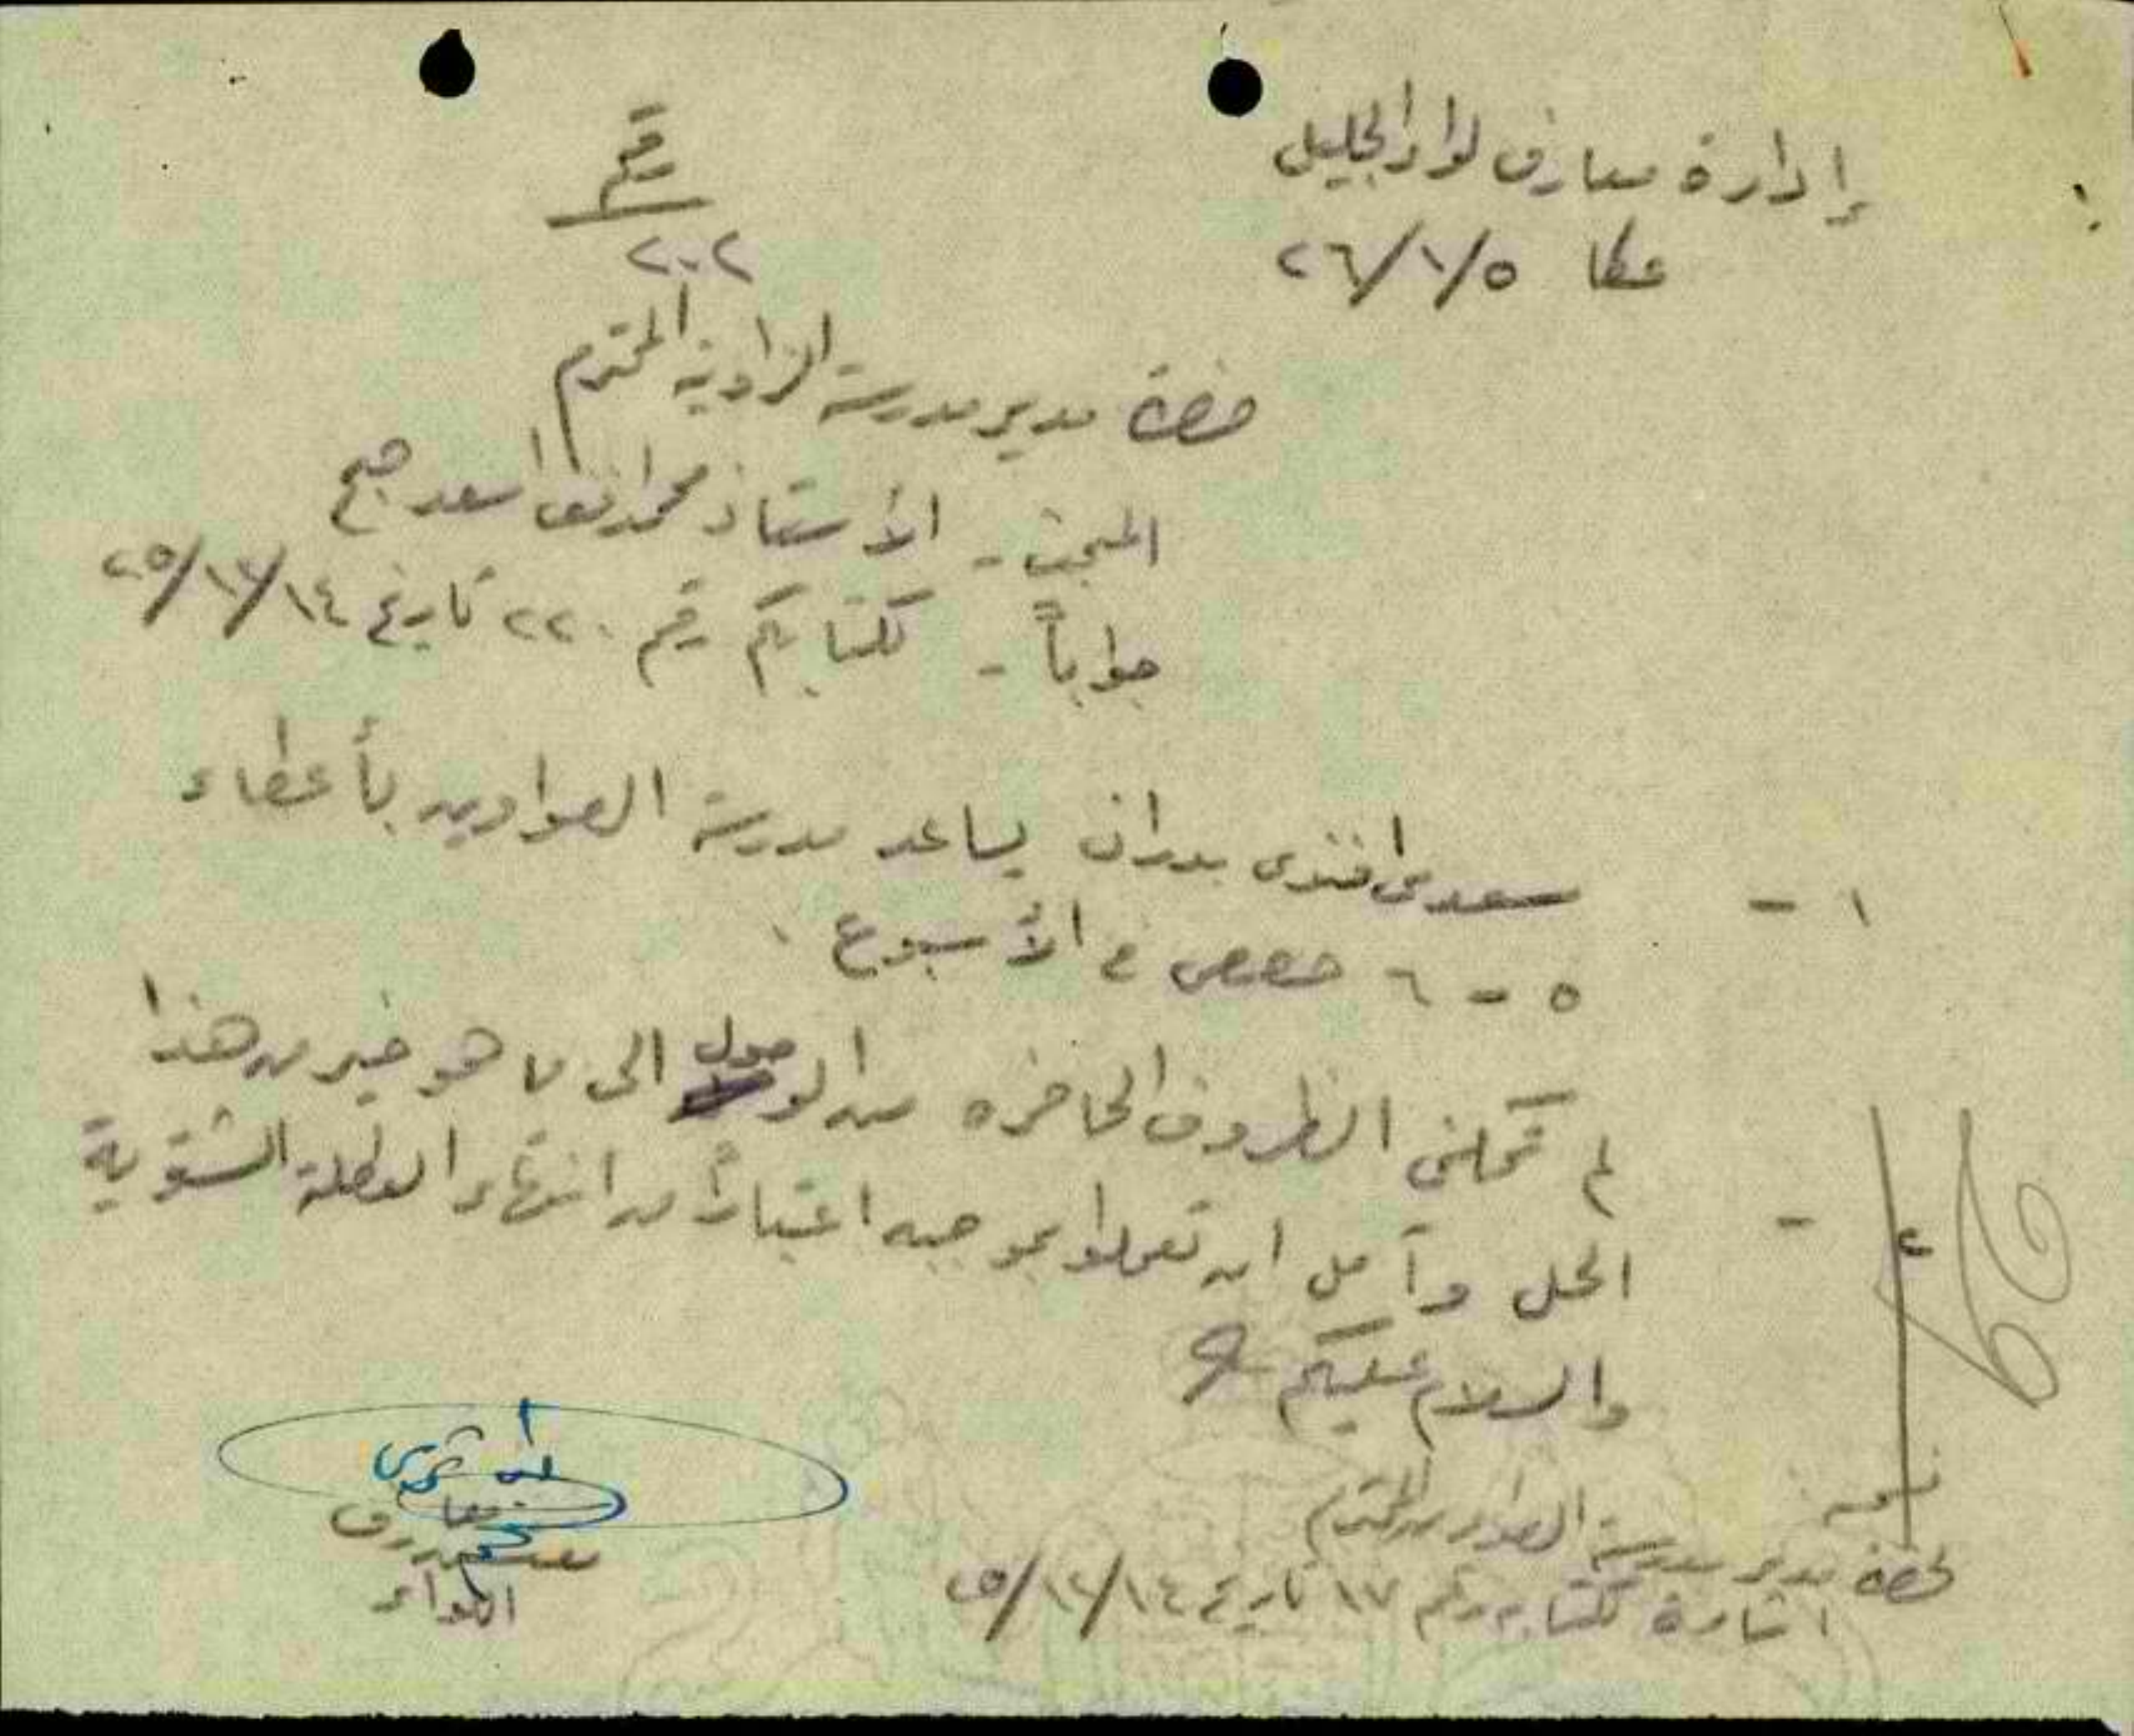 إدارة معارف لواء الجليل
عكا ٢٦/١/٥
رقم
٢٠٢
حضرة مدير مدرسة الزاوية المحترم
المبحث - الأستاذ محمد افندي اسعد
جواباً - لكتابكم رقم ٢٢٠ تاريخ ٢٥/١٢/١٤
١ - سعدي افندي بدران يساعد مدرسة بأعطاء
٥ - ٦ حصص في الأسبوع .
٢ - لم تمكني الظروف الحاضره من الوصول الى ما هو خير من هذا
الحل وآمل ان تعملوا بموجبه اعتباراً من انتهاء العطلة الشتوية
والسلام عليكم
معارف
اللواء
نسخه :
لحضرة مدير مدرسة المحترم
اشارة لكتابه رقم ١٧ تاريخ ٢٥/١٢/١٤